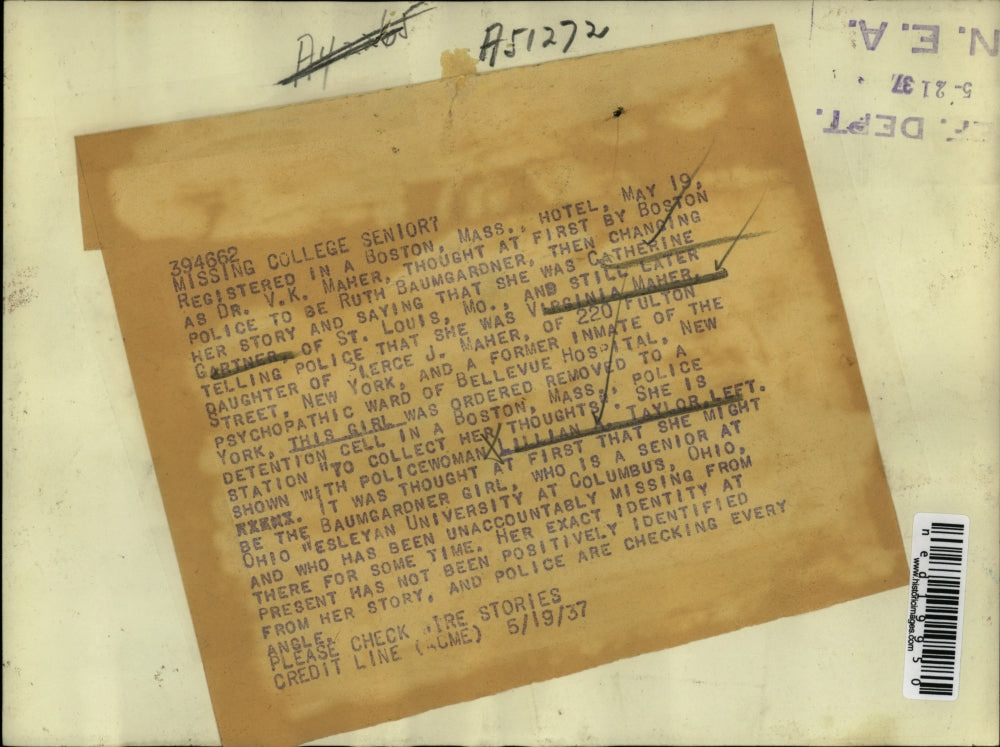 A44265
A51272
N. E. A.
5-21 37
EF. DEPT.
394662
MISSING COLLEGE SENIOR?
REGISTERED IN A BOSTON, MASS., HOTEL, MAY 19,
AS DR. V.K. MAHER, THOUGHT AT FIRST BY BOSTON
POLICE TO BE RUTH BAUMGARDNER, THEN CHANGING
HER STORY AND SAYING THAT SHE WAS CATHERINE
GARTNER OF ST. LOUIS, MO., AND STILL LATER
TELLING POLICE THAT SHE WAS VIRGINIA MAHER,
DAUGHTER OF PIERCE J. MAHER, OF 220 FULTON
STREET, NEW YORK, AND A FORMER INMATE OF THE
PSYCHOPATHIC WARD OF BELLEVUE HOSPITAL, NEW
YORK, THIS GIRL WAS ORDERED REMOVED TO A
DETENTION CELL IN A BOSTON, MASS., POLICE
STATION "TO COLLECT HER THOUGHTS. SHE IS
SHOWN WITH POLICEWOMAN LILLIAN TAYLOR, LEFT.
IT WAS THOUGHT AT FIRST THAT SHE MIGHT
BE THE BAUMGARDNER GIRL, WHO IS A SENIOR AT
OHIO WESLEYAN UNIVERSITY AT COLUMBUS, OHIO,
AND WHO HAS BEEN UNACCOUNTABLY MISSING FROM
THERE FOR SOME TIME. HER EXACT IDENTITY AT
PRESENT HAS NOT BEEN POSITIVELY IDENTIFIED
FROM HER STORY, AND POLICE ARE CHECKING EVERY
ANGLE.
PLEASE CHECK WIRE STORIES
CREDIT LINE (ACME) 5/19/37
www.historicimages.com
ned19950